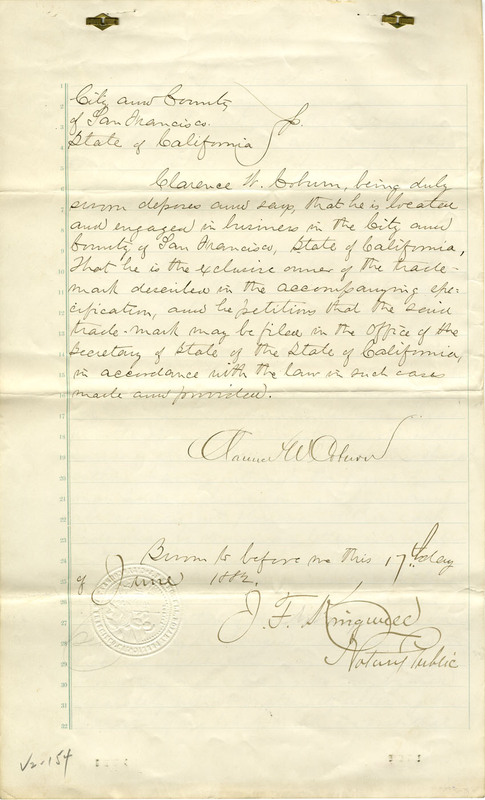 City and County
of San Francisco
State of California } ss.
Clarence W. Coburn, being duly
sworn deposes and says, that he is located
and engaged in business in the City and
County of San Francisco, State of California,
That he is the exclusive owner of the trade-
mark described in the accompanying spe-
cification, and he petitions that the said
trade-mark may be filed in the Office of the
Secretary of State of the State of California,
in accordance with the law in such cases
made and provided.
Clarence W Coburn
Sworn to before me this 17th day
of June 1882.
J. F. Kingwell
Notary Public
V2-154